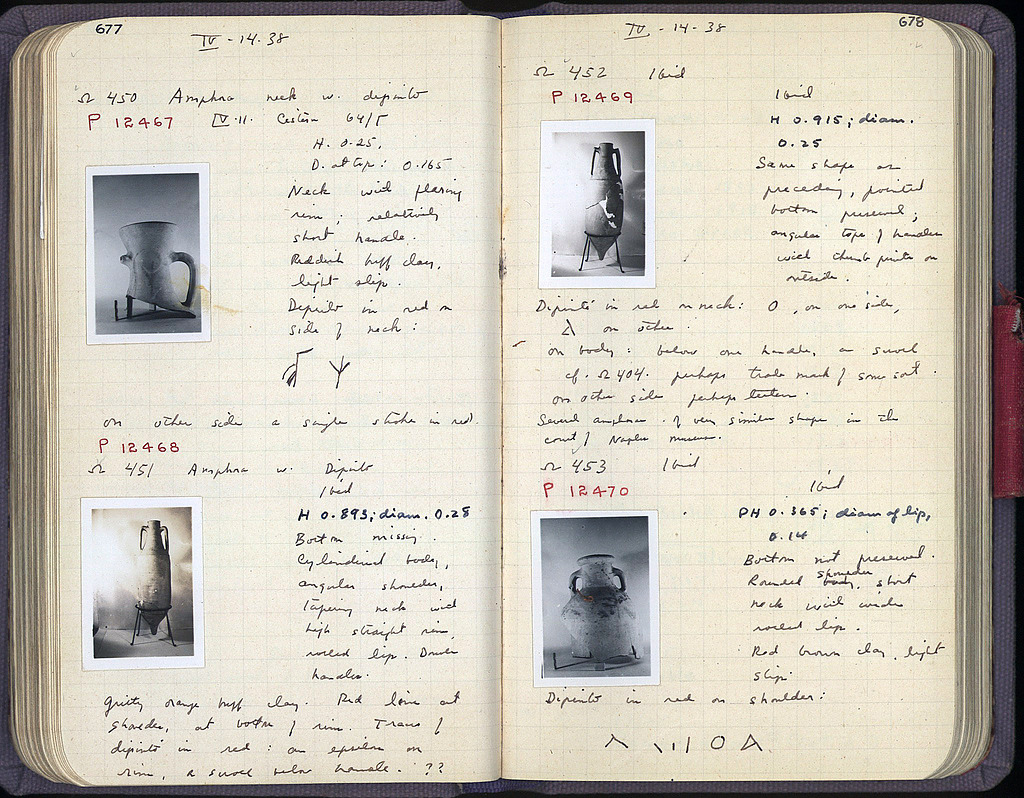 677
IV - 14 - 38
Ω 450 Amphora neck w. dipinto
P 12467 IV.11. Cistern 64/Γ
H. 0.25,
D. at top: 0.165
Neck with flaring
rim; relatively
short handle.
Reddish buff clay,
light slip.
Dipinto in red on
side of neck:
on other side a single stroke in red.
P 12468
Ω 451 Amphora w. Dipinto
Ibid
H 0.893; diam. 0.28
Bottom missing.
Cylindrical body,
angular shoulder,
tapering neck with
high straight rim,
rolled lip. Double
handles.
Gritty orange buff clay. Red line at
shoulder, at bottom of rim. Traces of
dipinti in red: an epsilon on
rim, a scroll below handle. ??
678
IV - 14 - 38
Ω 452 Ibid
P 12469 Ibid
H 0.915; diam.
0.25
Same shape as
preceding, pointed
bottom preserved;
angular tops of handles
with thumb prints on
outside.
Dipinti in red on neck: O, on one side,
on other.
on body: below one handle, a scroll
cf. Ω 404. perhaps trade mark of some sort.
on other side perhaps letters.
Several amphorae of very similar shape in the
court of Naples museum.
Ω 453 Ibid
P 12470 Ibid
PH 0.365; diam of lip,
0.14
Bottom not preserved.
Rounded shoulder, short
neck with wide
rolled lip.
Red brown clay, light
slip.
Dipinto in red on shoulder: